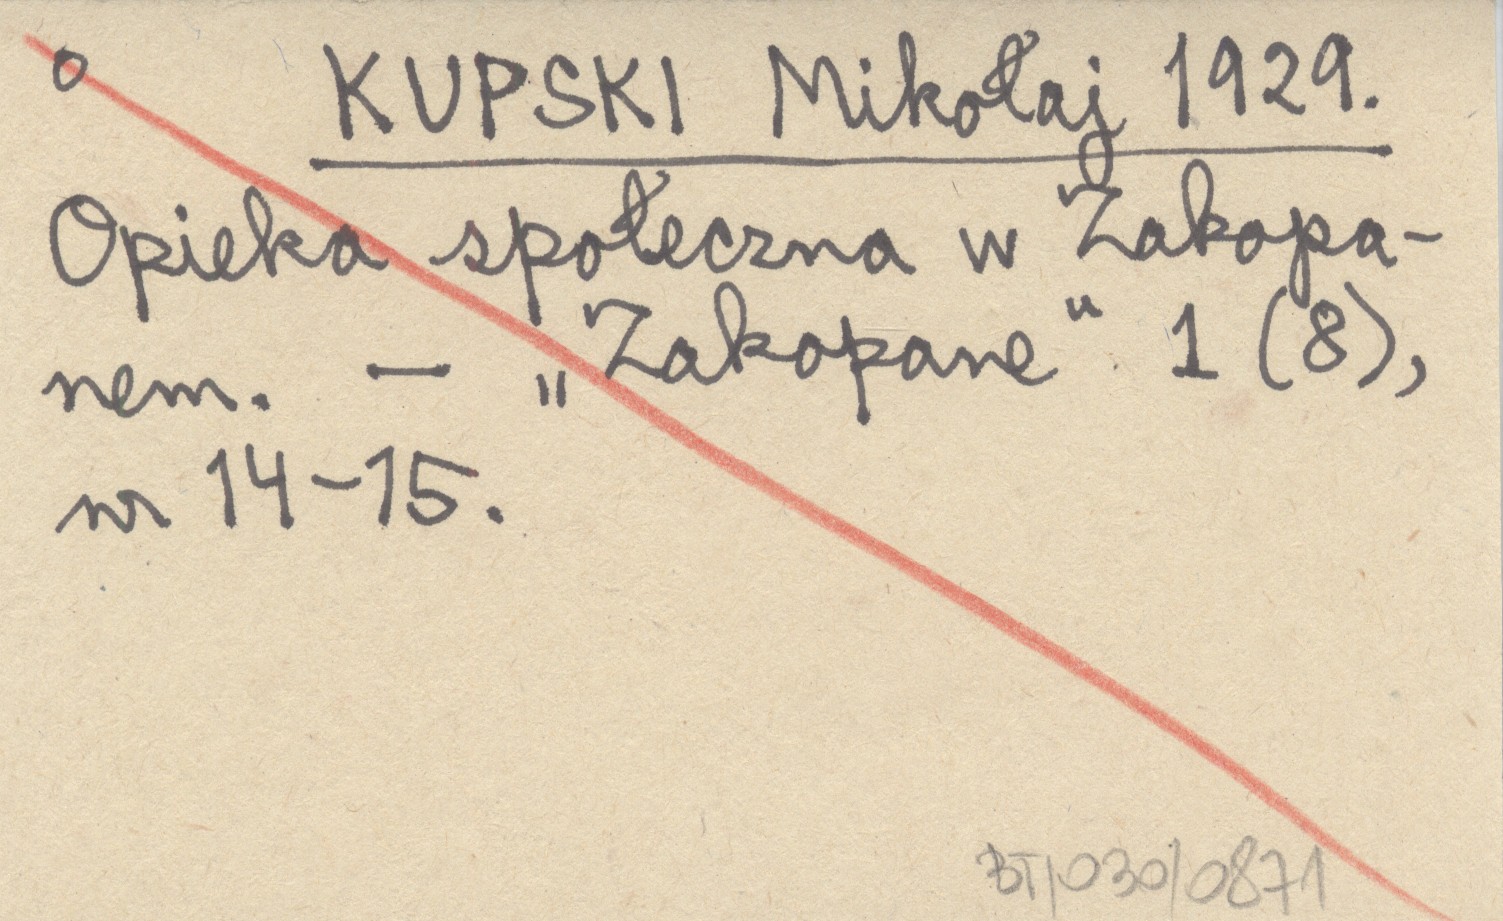 o KUPSKI Mikołaj 1929.
Opieka społeczna w Zakopa-
nem. — „Zakopane" 1 (8),
nr 14-15.
BT/030/0871